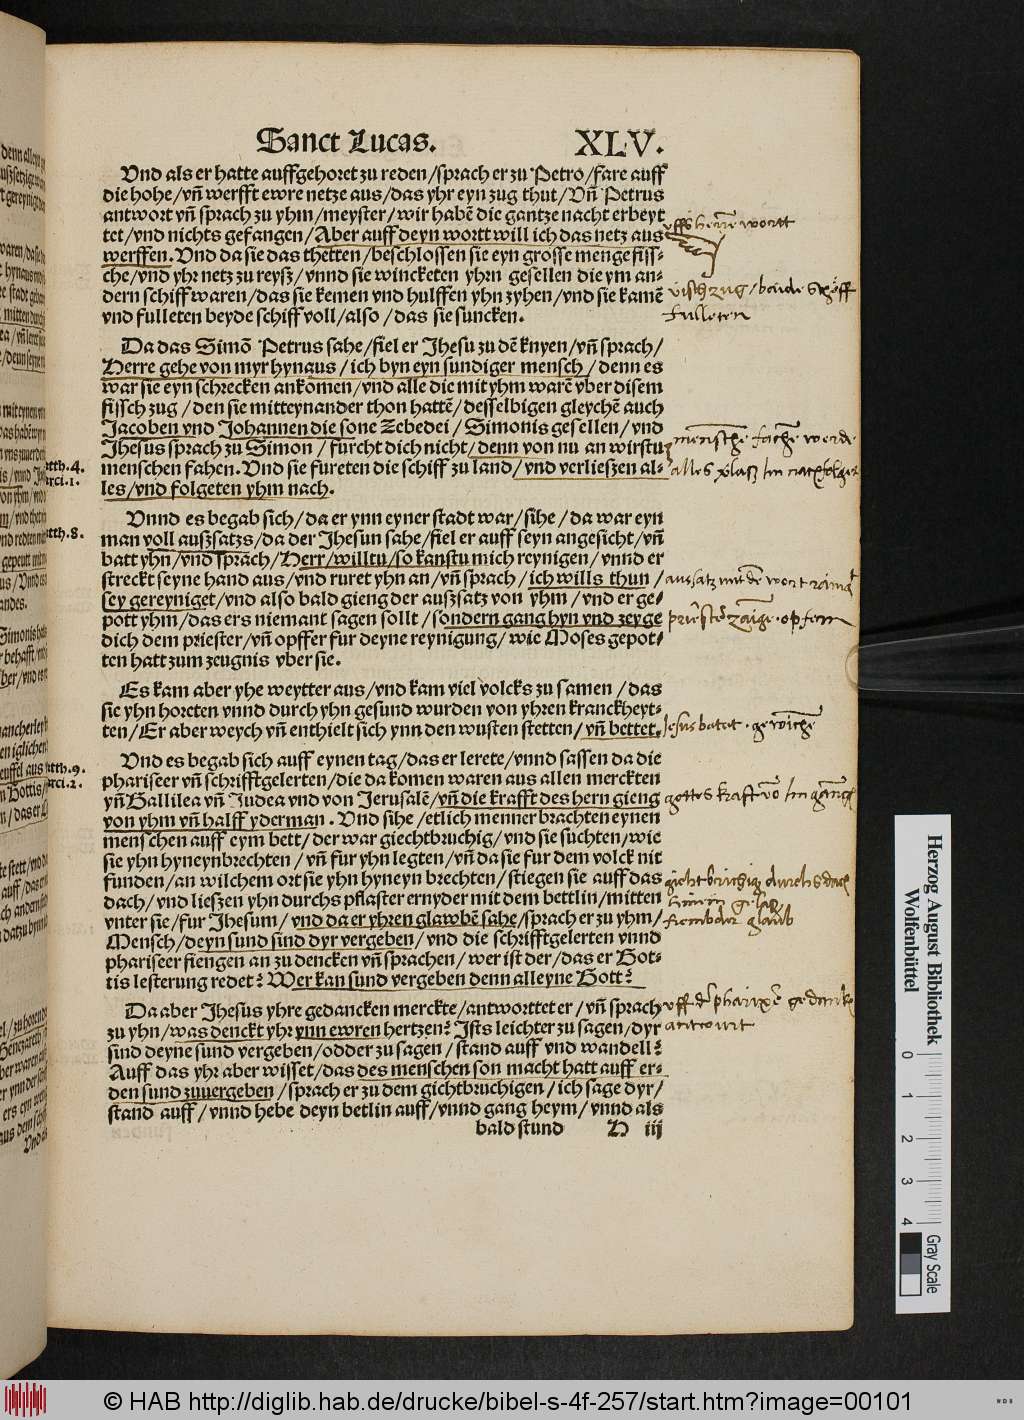 Sanct Lucas. XLV.
Vnd als er hatte auffgehoret zu reden/sprach er zu Petro/fare auff
die hohe/vn̄ werfft ewre netze aus/das yhr eyn zug thut/Vn̄ Petrus
antwort vn̄ sprach zu yhm/meyster/wir habē die gantze nacht erbeyt
tet/vnd nichts gefangen/Aber auff deyn wortt will ich das netz aus
werffen. Vnd da sie das thetten/beschlossen sie eyn grosse menge fiss-
che/vnd yhr netz zu reysz/vnnd sie winckten yhrn gesellen die ym an-
dern schiff waren/das sie kemen vnd hulffen yhn zyhen/vnd sie kamē
vnd fulleten beyde schiff voll/also/das sie suncken.
Da das Simō Petrus sahe/fiel er Jhesu zu dē knyen/vn̄ sprach/
Herre gehe von myr hynaus/ich byn eyn sundiger mensch/denn es
war sie eyn schrecken ankomen/vnd alle die mit yhm warē vber disem
fissch zug/den sie mitteynander thon hattē/desselbigen gleychē auch
Jacoben vnd Johannen die sone Zebedei/Simonis gesellen/vnd
Jhesus sprach zu Simon/furcht dich nicht/denn von nu an wirstu
menschen fahen. Vnd sie fureten die schiff zu land/vnd verlieszen al-
les/vnd folgeten yhm nach.
Vnnd es begab sich/da er ynn eyner stadt war/sihe/da war eyn
man voll auszsatzs/da der Jhesun sahe/fiel er auff seyn angesicht/vn̄
batt yhn/vnd sprach/Herr/willtu/so kanstu mich reynigen/vnnd er
streckt seyne hand aus/vnd ruret yhn an/vn̄ sprach/ich wills thun/
sey gereyniget/vnd also bald gieng der auszsatz von yhm/vnd er ge-
pott yhm/das ers niemant sagen sollt/sondern gang hyn vnd zeyge
dich dem priester/vn̄ opffer fur deyne reynigung/wie Moses gepot-
ten hatt zum zeugnis vber sie.
Es kam aber yhe weytter aus/vnd kam viel volcks zu samen/das
sie yhn horeten vnnd durch yhn gesund wurden von yhren kranckheyt-
ten/Er aber weych vn̄ enthielt sich ynn den wusten stetten/vn̄ bettet.
Vnd es begab sich auff eynen tag/das er lerete/vnnd sassen da die
phariseer vn̄ schrifftgelerten/die da komen waren aus allen merckten
yn̄ Gallilea vn̄ Judea vnd von Jerusalē/vn̄ die krafft des hern gieng
von yhm vn̄ halff yderman. Vnd sihe/etlich menner brachten eynen
menschen auff eym bett/der war giechtbruchig/vnd sie suchten/wie
sie yhn hyneynbrechten/vn̄ fur yhn legten/vn̄ da sie fur dem volck nit
funden/an wilchem ort sie yhn hyneyn brechten/stiegen sie auff das
dach/vnd lieszen yhn durchs pflaster ernyder mit dem bettlin/mitten
vnter sie/fur Jhesum/vnd da er yhren glawbē sahe/sprach er zu yhm/
Mensch/deyn sund sind dyr vergeben/vnd die schrifftgelerten vnnd
phariseer fiengen an zu dencken vn̄ sprachen/wer ist der/das er Got-
tis lesterung redet? Wer kan sund vergeben denn alleyne Gott?
Da aber Jhesus yhre gedancken merckte/antworttet er/vn̄ sprach
zu yhn/was denckt yhr ynn ewren hertzen? Ists leichter zu sagen/dyr
sind deyne sund vergeben/odder zu sagen/stand auff vnd wandell?
Auff das yhr aber wisset/das des menschen son macht hatt auff er-
den sund zuuergeben/sprach er zu dem gichtbruchigen/ich sage dyr/
stand auff/vnnd hebe deyn betlin auff/vnnd gang heym/vnnd als
bald stund H iij
uffs herre wortt
vischzug/baide schöff
fulleten
mensche fache werde
priester zaige. opfern
Jesus batet. gewiche
gottes krafft
hinin gelas
antwurt
atth. 4.
arci. 1.
atth. 8.
atth. 9.
arci. 2.
Herzog August Bibliothek
Wolfenbüttel
0 1 2 3 4
Gray Scale
© HAB http://diglib.hab.de/drucke/bibel-s-4f-257/start.htm?image=00101